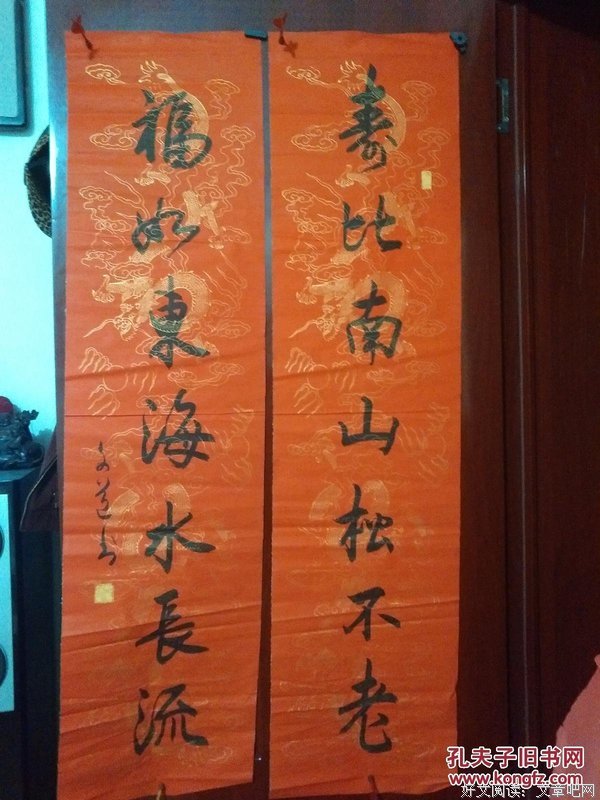 寿比南山松不老
福如東海水長流
孔夫子旧书网
www.kongfz.com
好文阅读:文章吧网